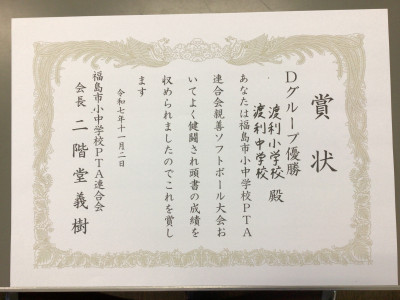 賞状
Dグループ優勝
渡利小学校
渡利中学校
殿
あなたは福島市小中学校PTA
連合会親善ソフトボール大会お
いてよく健闘され頭書の成績を
収められましたのでこれを賞し
ます
令和七年十一月二日
福島市小中学校PTA連合会
会長 二階堂義樹